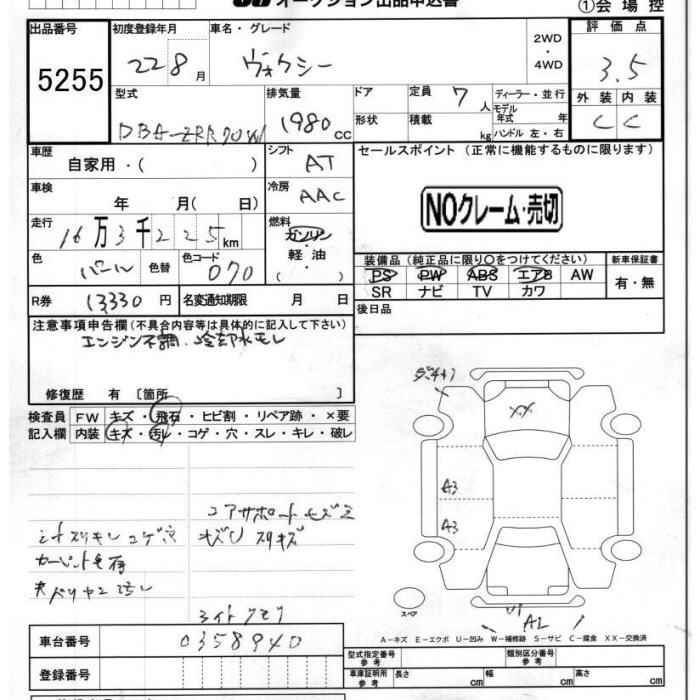 オークション出品申込書
①会場控
出品番号
5255
初度登録年月
22 8 月
車名・グレード
ヴォクシー
2WD
・
4WD
評価点
3.5
外装 内装
C C
型式
DBA-ZRR70W
排気量
1980 cc
ドア
形状
定員 7 人
積載 kg
ディーラー・並行
モデル年式 年
ハンドル 左・右
車歴
自家用・( )
シフト
AT
セールスポイント (正常に機能するものに限ります)
NOクレーム・売切
車検
年 月( 日)
冷房
AAC
走行
16万3千225km
燃料
ガソリン
・
軽油
( )
色
パール
色替
色コード
070
装備品 (純正品に限り○をつけてください)
PS PW ABS エアB AW
SR ナビ TV カワ
新車保証書
有・無
R券
13,330 円
名変通知期限
月 日
後日品
注意事項申告欄(不具合内容等は具体的に記入して下さい)
エンジン不調、冷却水モレ
修復歴 有 〔箇所 〕
検査員
記入欄
FW キズ・飛石・ヒビ割・リペア跡・×要
内装 キズ・汚れ・コゲ・穴・スレ・キレ・破レ
XX
A3
A3
コアサポート
キズU スリキズ
ライトクモリ
スペア
U1
A2
A-キズ E-エクボ U-凹み W-補修跡 S-サビ C-腐食 XX-交換済
車台番号
0358940
登録番号
型式指定番号
参考
類別区分番号
参考
車庫証明用
参考
長さ cm
幅 cm
高さ cm